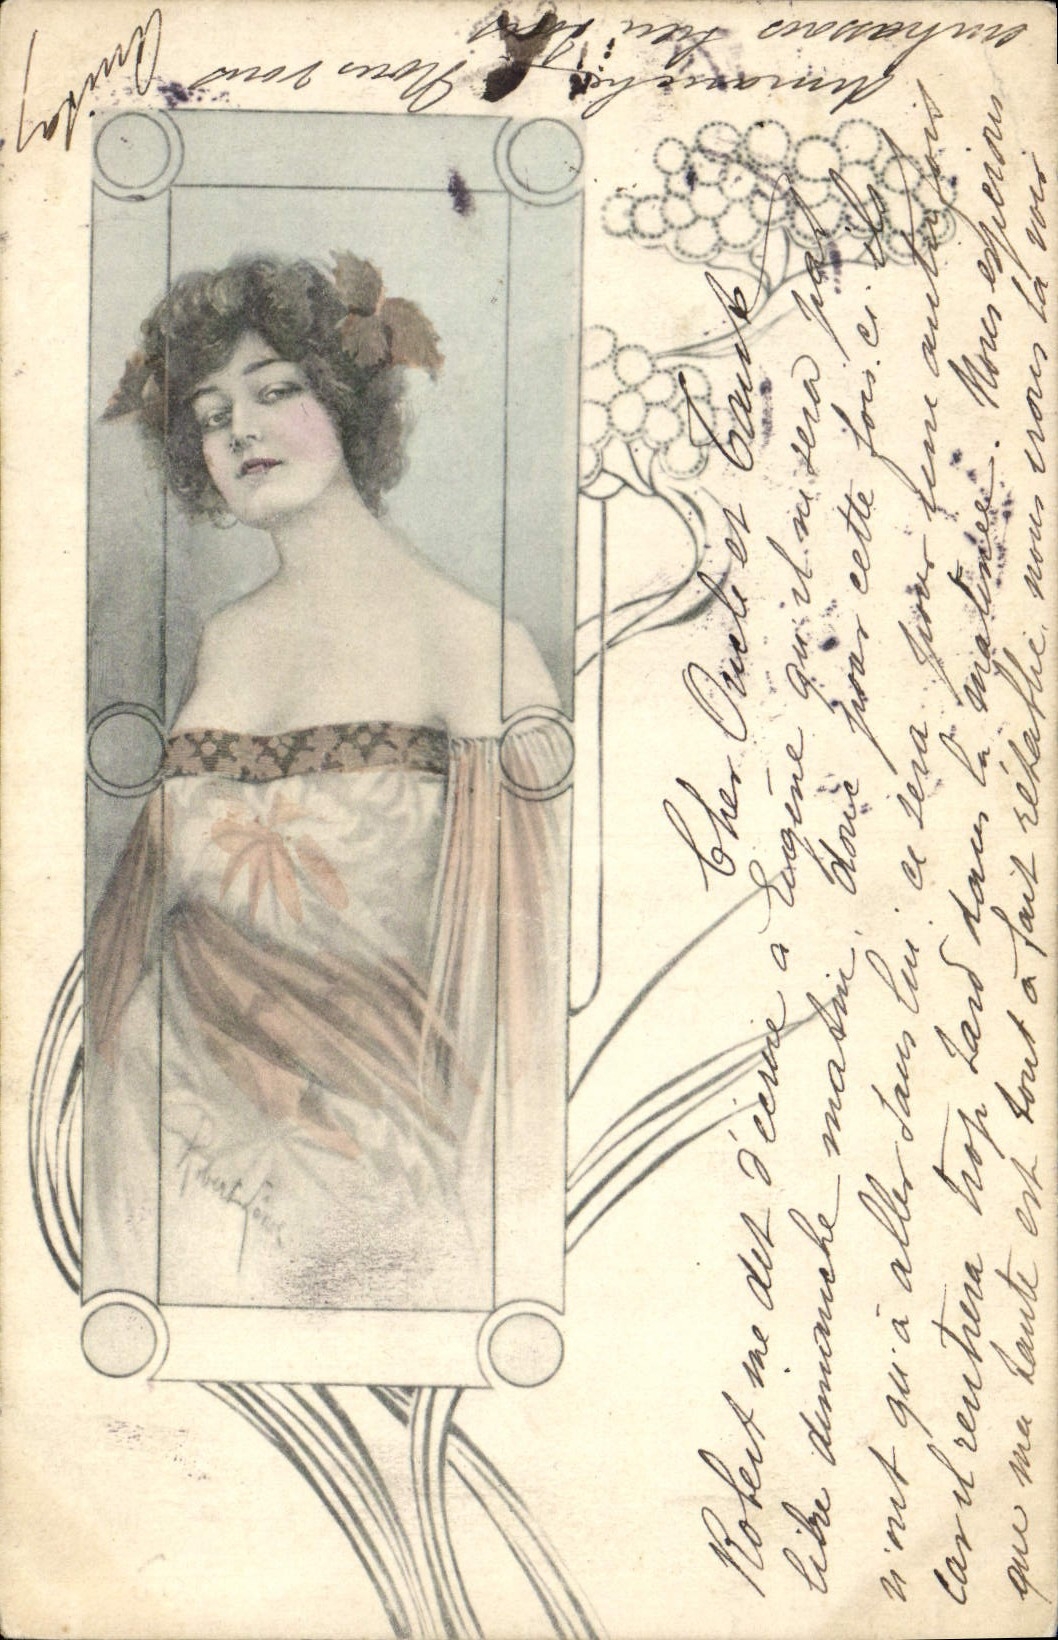 Cher Oncle et Tante
Robert me dit d'écrire à Eugène qu'il ne sera pas
libre dimanche matin, donc pour cette fois-ci ils
n'ont qu'à aller sans lui ce sera pour une autre fois
car il rentrera trop tard dans la matinée. Nous espérons
que ma tante est tout à fait rétablie, nous irons la voir
dimanche. Nous vous
embrassons bien
Robert